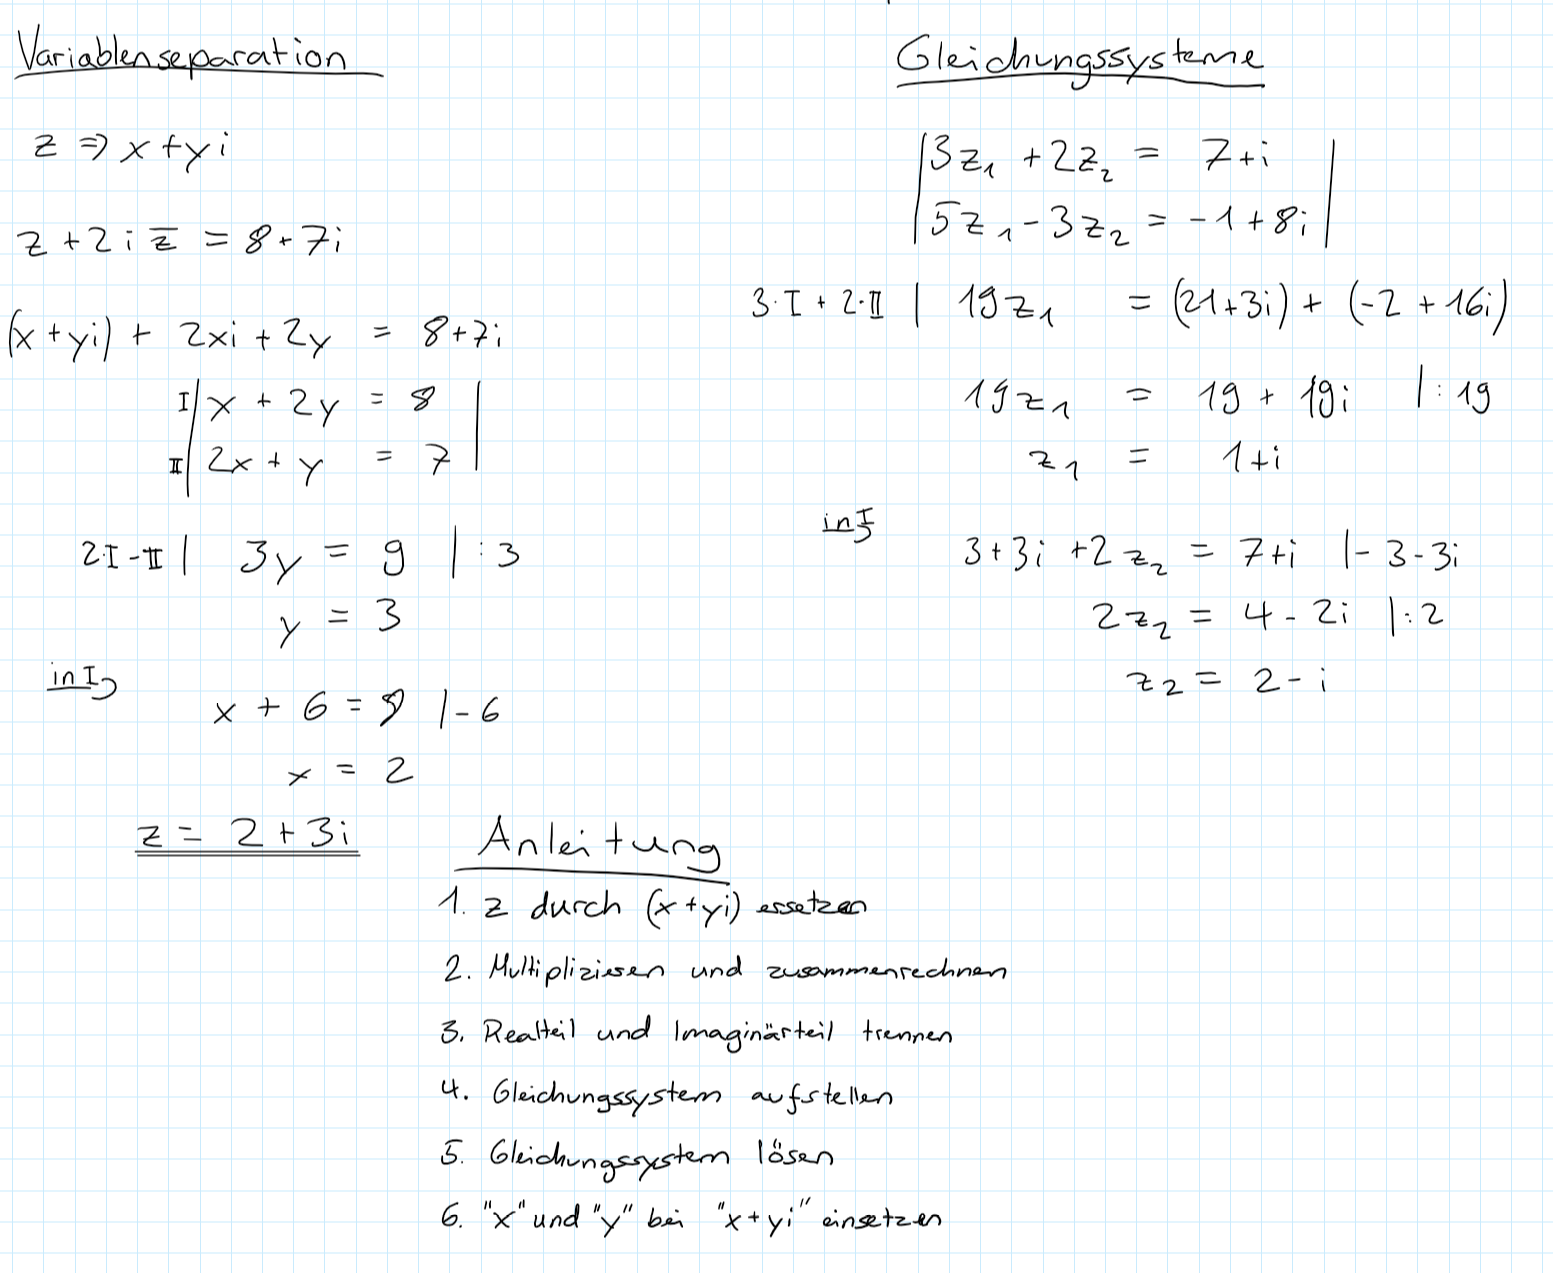 Variablenseparation
z ⇒ x+yi
z + 2i z̅ = 8+7i
(x+yi) + 2xi + 2y = 8+7i
I | x + 2y = 8 |
II | 2x + y = 7 |
2·I - II | 3y = 9 | :3
y = 3
in I
x + 6 = 8 | -6
x = 2
z = 2+3i
Gleichungssysteme
| 3z₁ + 2z₂ = 7+i |
| 5z₁ - 3z₂ = -1+8i |
3·I + 2·II | 19z₁ = (21+3i) + (-2+16i)
19z₁ = 19 + 19i | :19
z₁ = 1+i
in I
3+3i + 2z₂ = 7+i | -3-3i
2z₂ = 4-2i | :2
z₂ = 2-i
Anleitung
1. z durch (x+yi) ersetzen
2. Multiplizieren und zusammenrechnen
3. Realteil und Imaginärteil trennen
4. Gleichungssystem aufstellen
5. Gleichungssystem lösen
6. "x" und "y" bei "x+yi" einsetzen